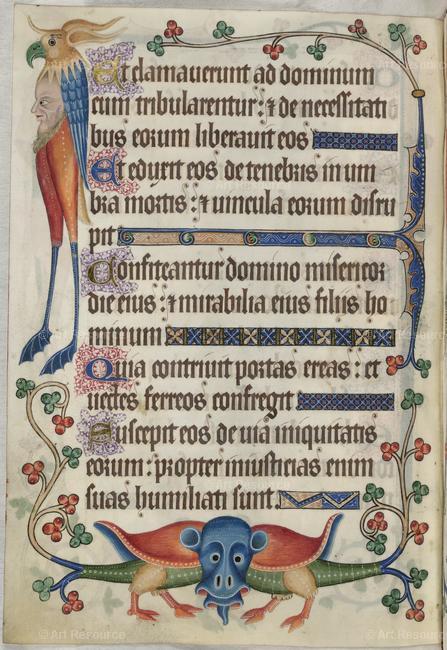 Et clamauerunt ad dominum
cum tribularentur: ⁊ de necessitati
bus eorum liberauit eos
Et eduxit eos de tenebris in um
bra mortis: ⁊ uincula eorum disru
pit
Confiteantur domino misericor
die eius: ⁊ mirabilia eius filiis ho
minum
Quia contriuit portas ereas: et
uectes ferreos confregit
Suscepit eos de uia iniquitatis
eorum: propter iniusticias enim
suas humiliati sunt.
© Art Resource
© Art Resource
© Art Resource
© Art Resource